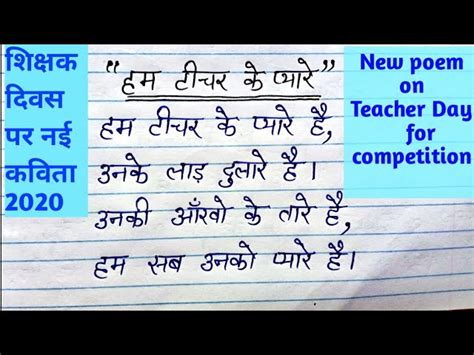 शिक्षक
दिवस
पर नई
कविता
2020
"हम टीचर के प्यारे"
हम टीचर के प्यारे है,
उनके लाड़ दुलारे है।
उनकी आँखो के तारे है,
हम सब उनको प्यारे है।
New poem
on
Teacher Day
for
competition